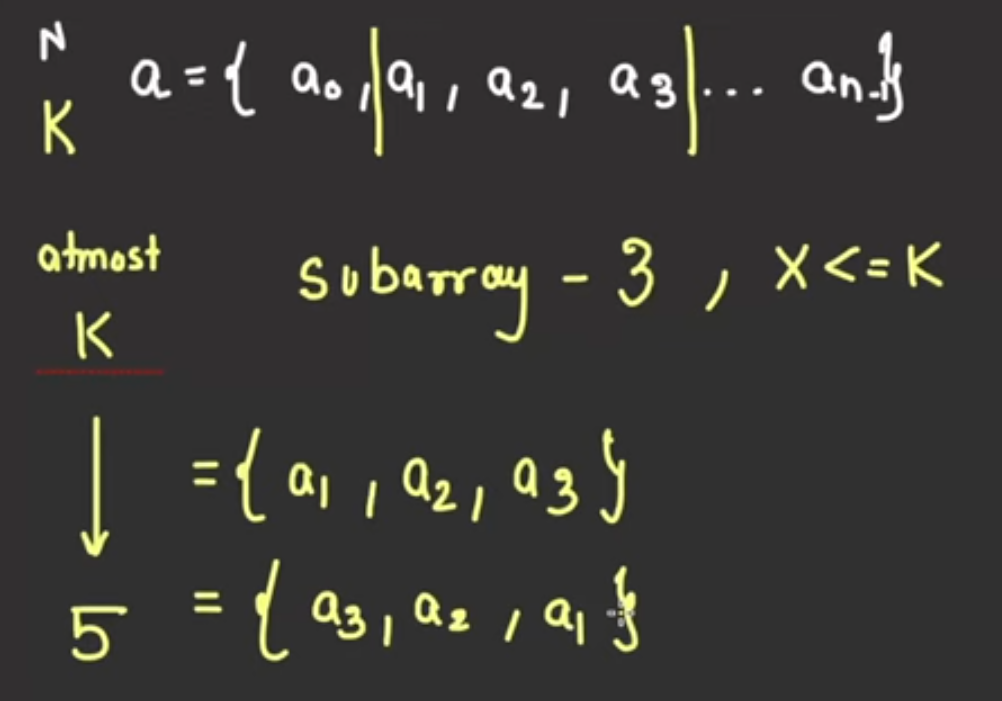 N
a = { a0, | a1, a2, a3 | ... an-1}
K
atmost
K
subarray - 3 , X <= K
= { a1, a2, a3 }
5
= { a3, a2, a1 }